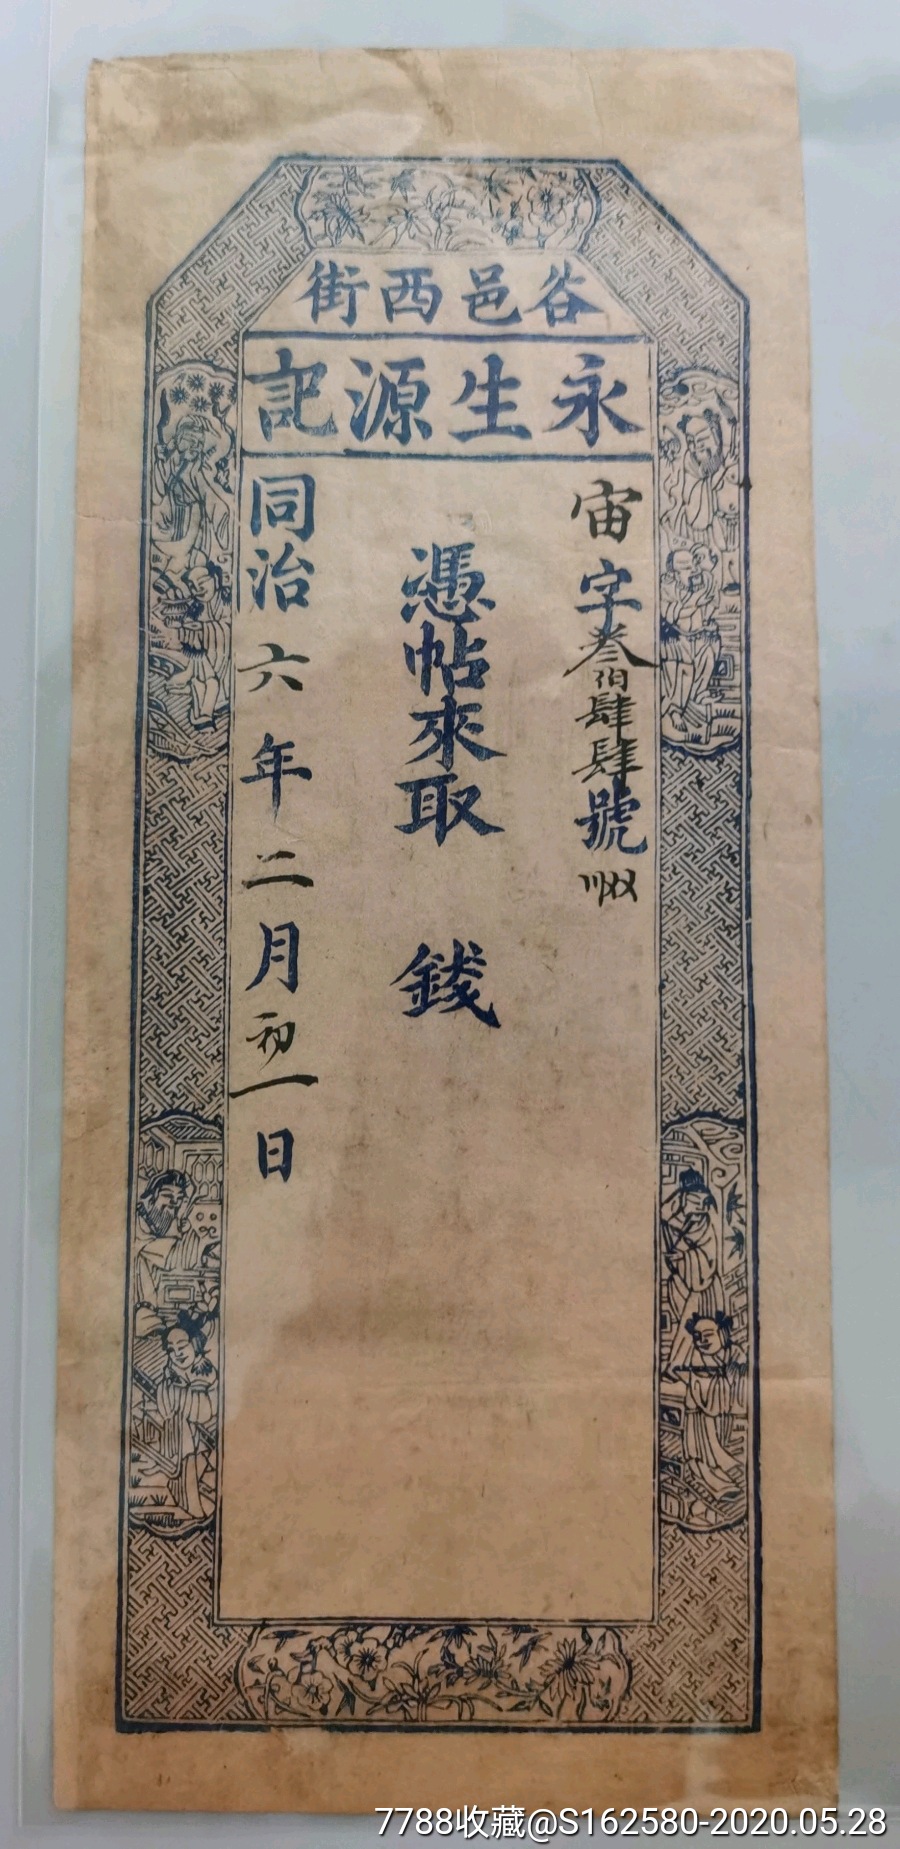 谷邑西街
永生源記
宙字叄佰肆肆號
憑帖來取 錢
同治六年二月初一日
7788收藏@S162580-2020.05.28